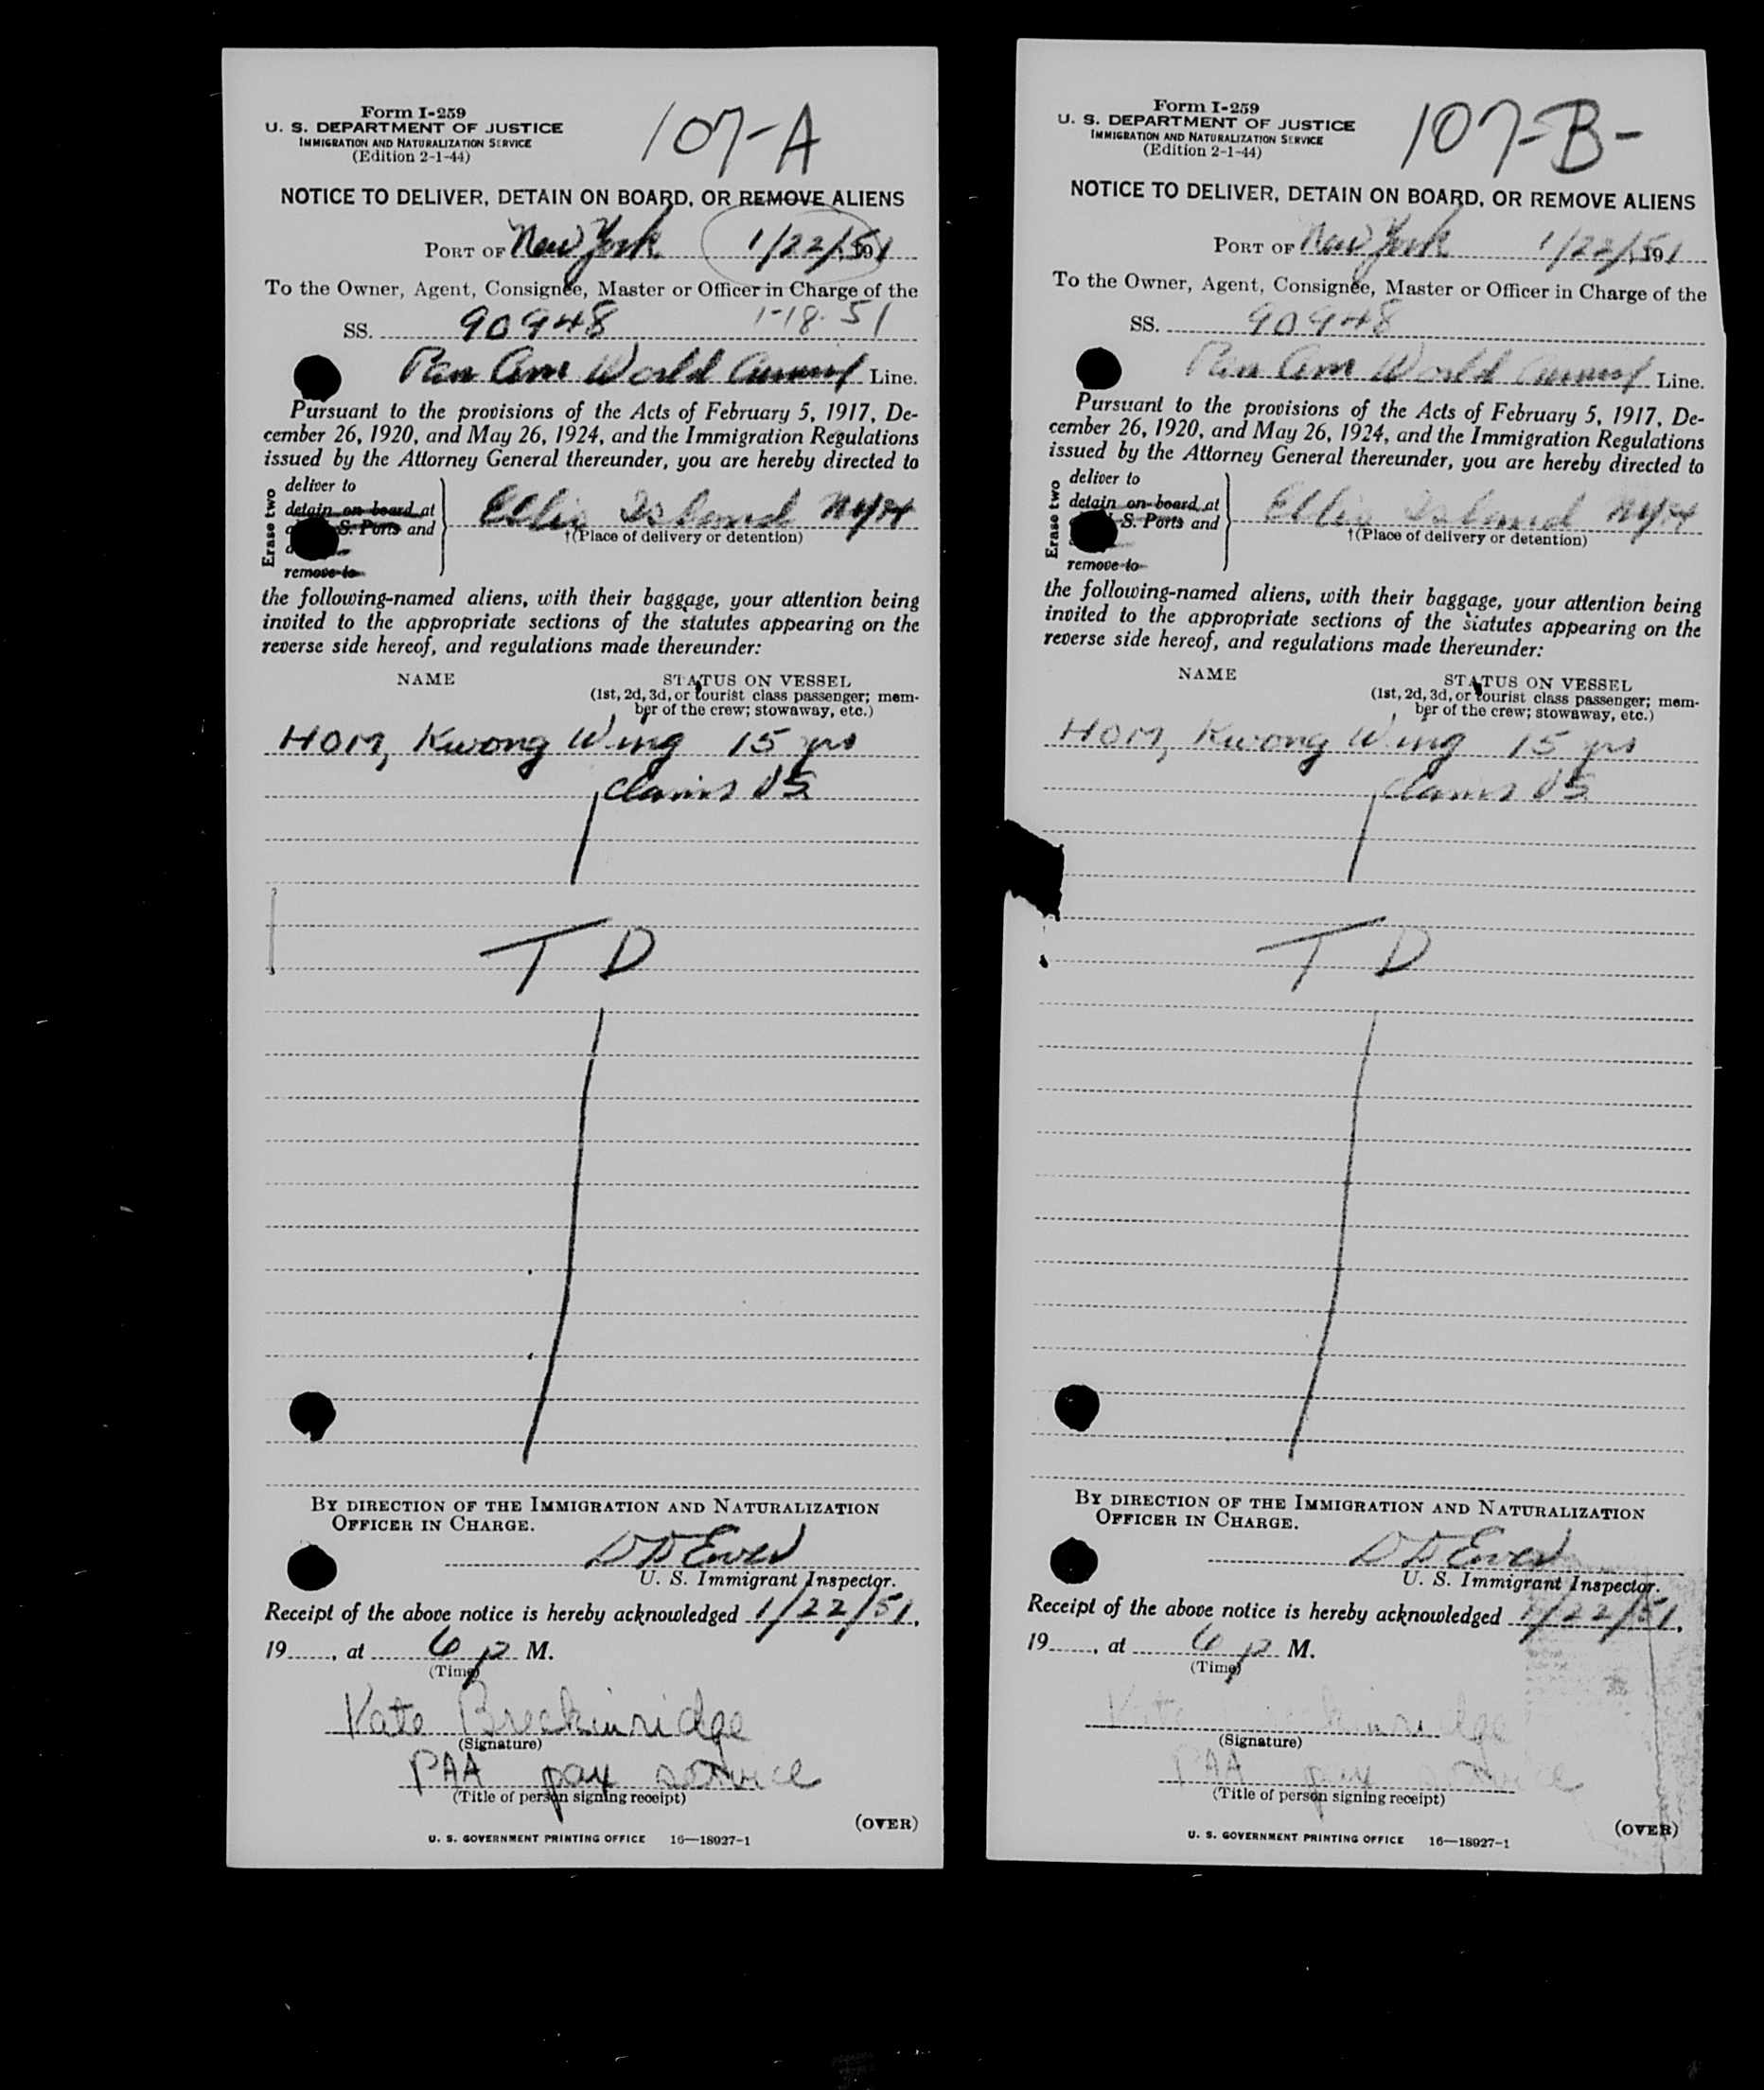 Form I-259
U. S. DEPARTMENT OF JUSTICE
IMMIGRATION AND NATURALIZATION SERVICE
(Edition 2-1-44)
107-A
NOTICE TO DELIVER, DETAIN ON BOARD, OR REMOVE ALIENS
PORT OF New York 1/22/51
To the Owner, Agent, Consignee, Master or Officer in Charge of the
1-18-51
SS. 90948
Pan Am World Line.
Pursuant to the provisions of the Acts of February 5, 1917, De-
cember 26, 1920, and May 26, 1924, and the Immigration Regulations
issued by the Attorney General thereunder, you are hereby directed to
Erase two
deliver to
detain on board at
S. Ports and
remove to
Ellis Island NYH
†(Place of delivery or detention)
the following-named aliens, with their baggage, your attention being
invited to the appropriate sections of the statutes appearing on the
reverse side hereof, and regulations made thereunder:
NAME STATUS ON VESSEL
(1st, 2d, 3d, or tourist class passenger; mem-
ber of the crew; stowaway, etc.)
HOM, Kwong Wing 15 yrs
claims US
T D
BY DIRECTION OF THE IMMIGRATION AND NATURALIZATION
OFFICER IN CHARGE.
U. S. Immigrant Inspector.
Receipt of the above notice is hereby acknowledged 1/22/51,
19......, at 6 p M.
(Time)
Kate Breckinridge
(Signature)
PAA pax service
(Title of person signing receipt)
(OVER)
U. S. GOVERNMENT PRINTING OFFICE 16—18927-1
Form I-259
U. S. DEPARTMENT OF JUSTICE
IMMIGRATION AND NATURALIZATION SERVICE
(Edition 2-1-44)
107-B-
NOTICE TO DELIVER, DETAIN ON BOARD, OR REMOVE ALIENS
PORT OF New York 1/22/51
To the Owner, Agent, Consignee, Master or Officer in Charge of the
SS. 90948
Pan Am World Line.
Pursuant to the provisions of the Acts of February 5, 1917, De-
cember 26, 1920, and May 26, 1924, and the Immigration Regulations
issued by the Attorney General thereunder, you are hereby directed to
Erase two
deliver to
detain on board at
S. Ports and
remove to
Ellis Island NYH
†(Place of delivery or detention)
the following-named aliens, with their baggage, your attention being
invited to the appropriate sections of the statutes appearing on the
reverse side hereof, and regulations made thereunder:
NAME STATUS ON VESSEL
(1st, 2d, 3d, or tourist class passenger; mem-
ber of the crew; stowaway, etc.)
HOM, Kwong Wing 15 yrs
claims US
T D
BY DIRECTION OF THE IMMIGRATION AND NATURALIZATION
OFFICER IN CHARGE.
U. S. Immigrant Inspector.
Receipt of the above notice is hereby acknowledged 1/22/51,
19......, at 6 p M.
(Time)
Kate Breckinridge
(Signature)
PAA pax service
(Title of person signing receipt)
(OVER)
U. S. GOVERNMENT PRINTING OFFICE 16—18927-1